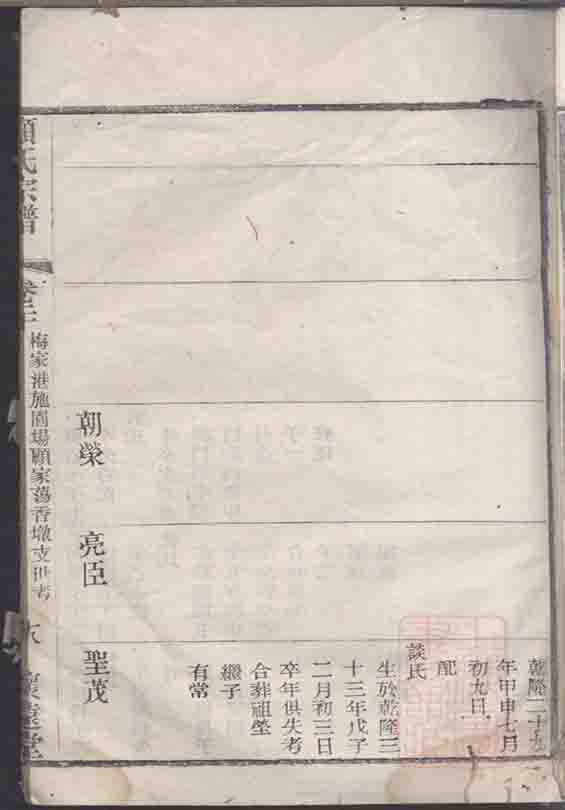 乾隆二十九
年甲申七月
初九日
配
談氏
生於乾隆三
十三年戊子
二月初三日
卒年俱失考
合葬祖塋
繼子
有常
朝榮
亮臣
聖茂
顧氏宗譜
梅家港施園場顧家蕩香墩支世考